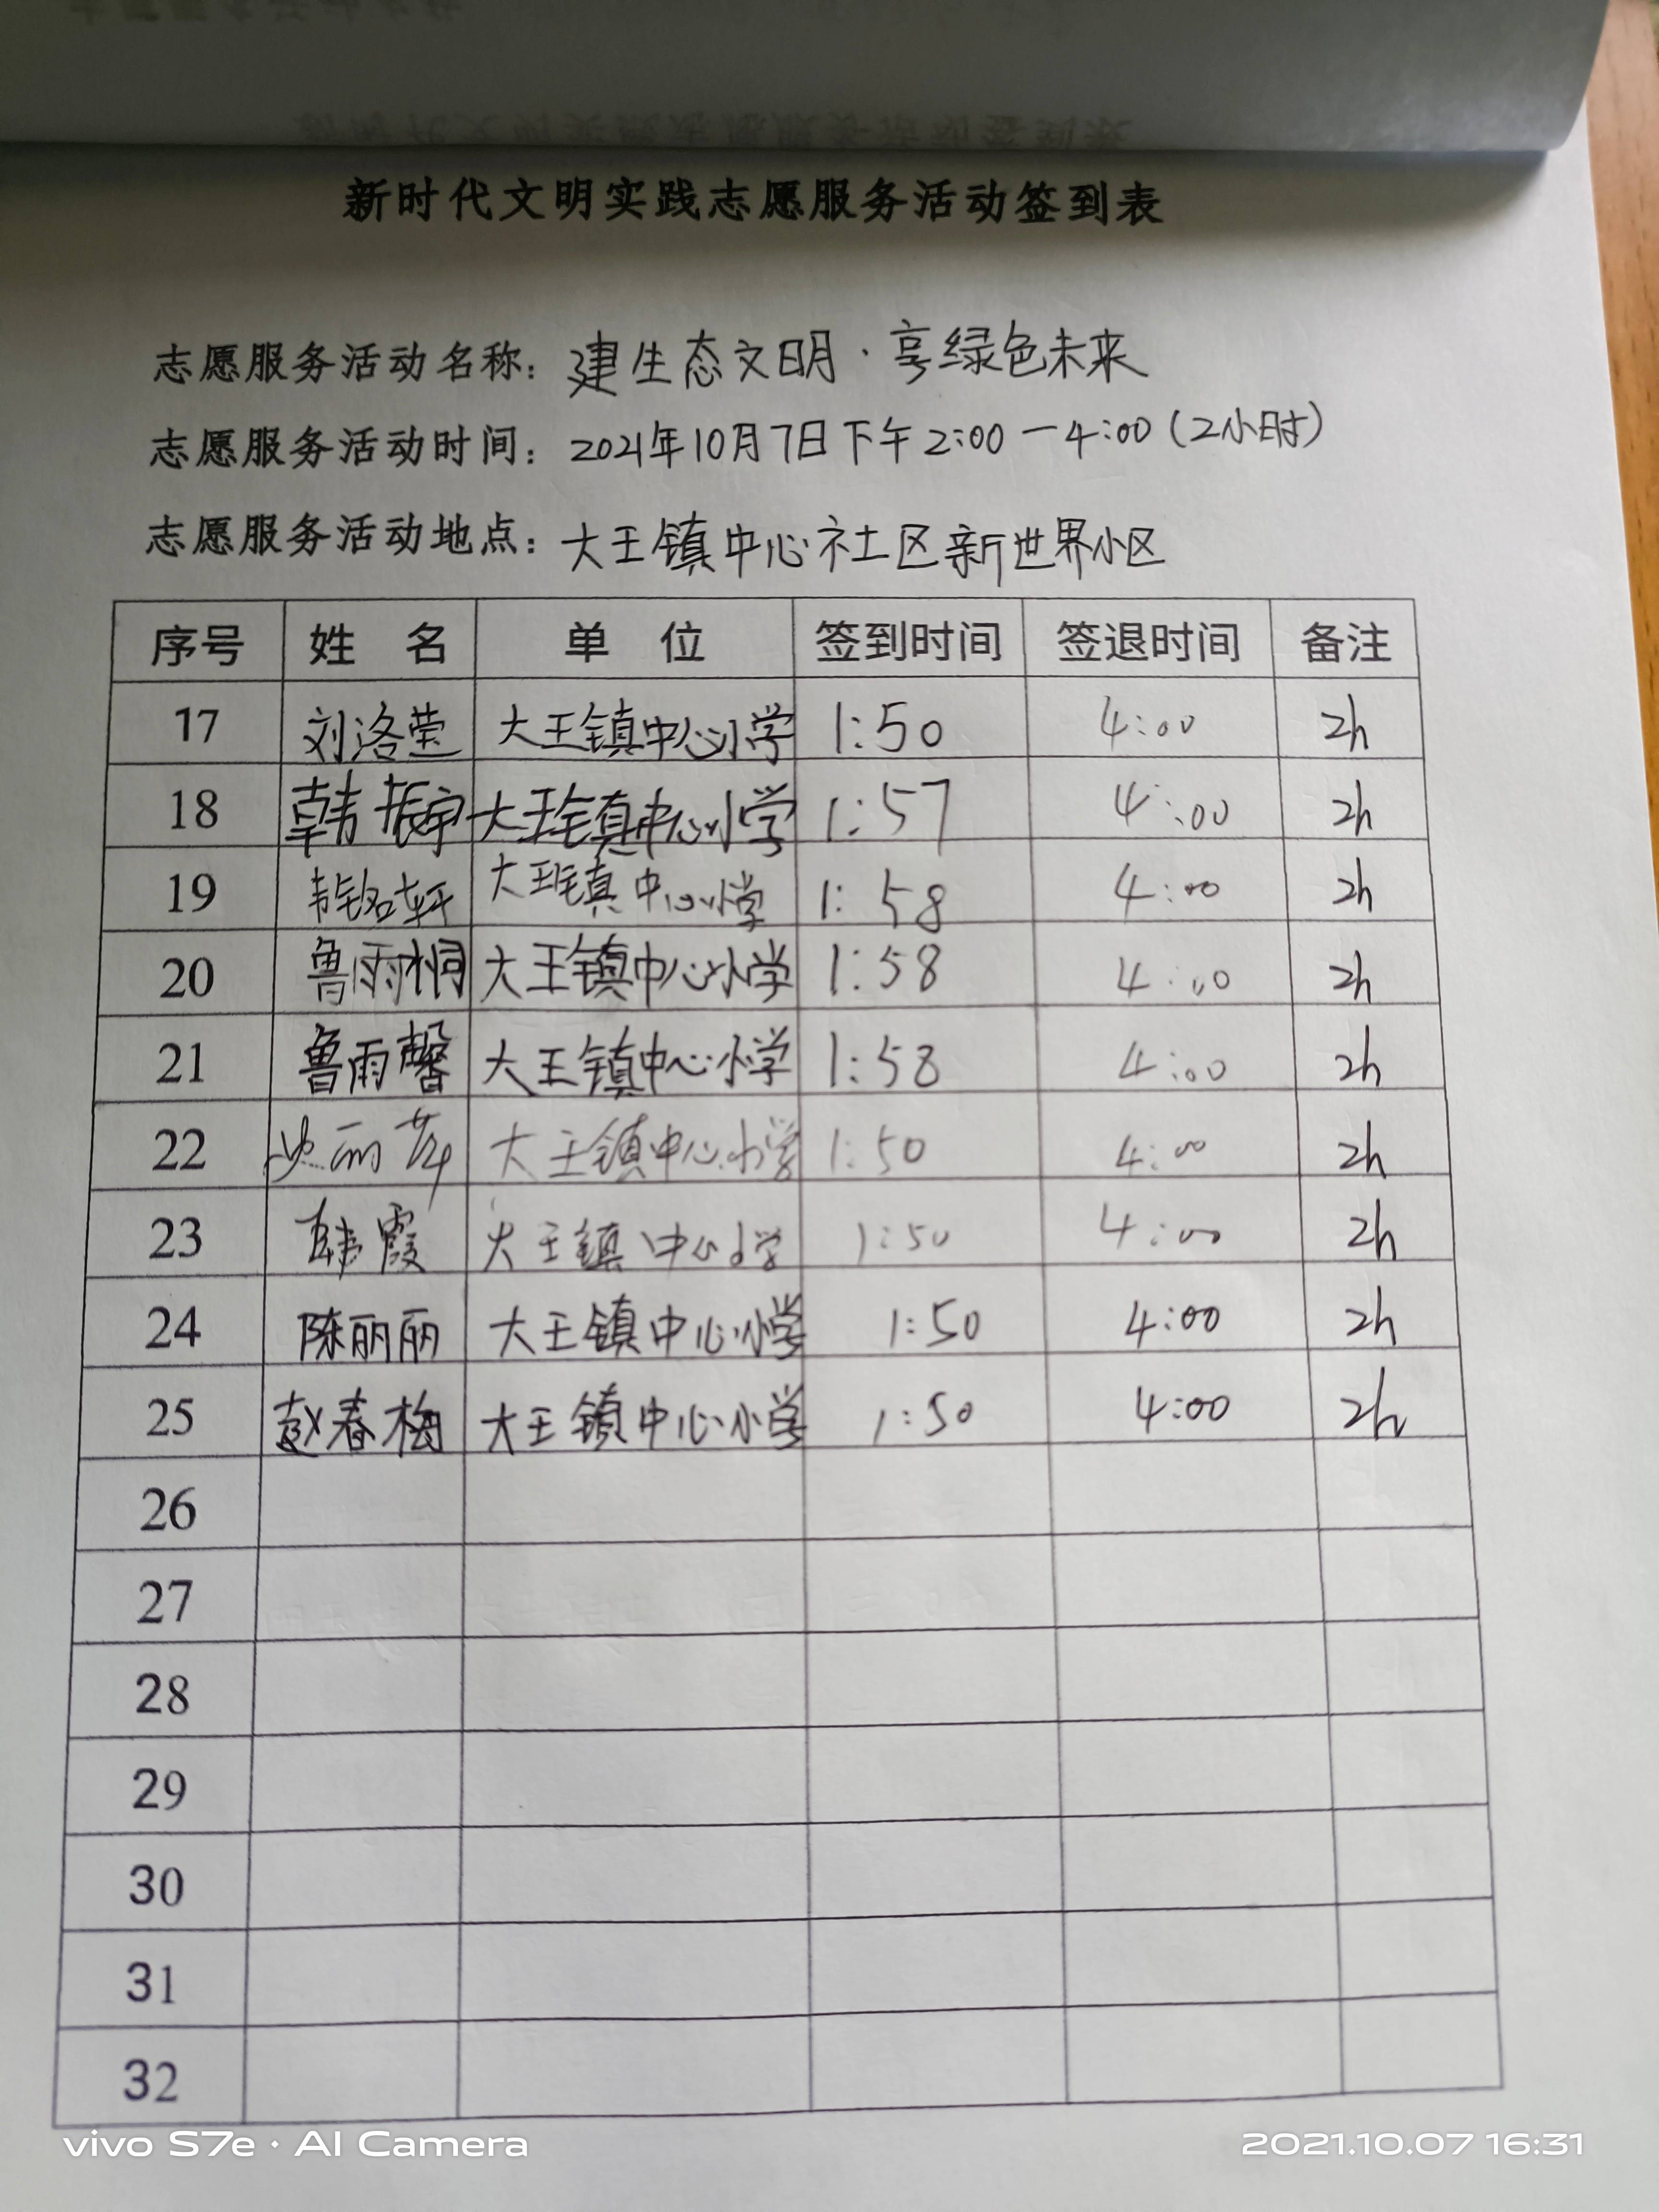 新时代文明实践志愿服务活动签到表
志愿服务活动名称：建生态文明·享绿色未来
志愿服务活动时间：2021年10月7日下午2:00—4:00（2小时）
志愿服务活动地点：大王镇中心社区新世界小区
序号 姓名 单位 签到时间 签退时间 备注
17 刘洛莹 大王镇中心小学 1:50 4:00 2h
18 韩振宇 大王镇中心小学 1:57 4:00 2h
19 大王镇中心小学 1:58 4:00 2h
20 鲁雨桐 大王镇中心小学 1:58 4:00 2h
21 鲁雨馨 大王镇中心小学 1:58 4:00 2h
22 大王镇中心小学 1:50 4:00 2h
23 韩霞 大王镇中心小学 1:50 4:00 2h
24 陈丽丽 大王镇中心小学 1:50 4:00 2h
25 赵春梅 大王镇中心小学 1:50 4:00 2h
26
27
28
29
30
31
32
vivo S7e · AI Camera 2021.10.07 16:31